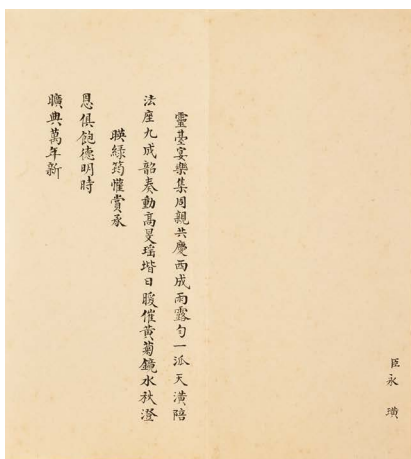 臣永璜
靈臺宴樂集周親共慶西成雨露勻一泒天潢陪
法座九成韶奏動高旻瑤堦日暖催黃菊鏡水秋澄
暎綠筠懽賞承
恩俱飽德明時
曠典萬年新